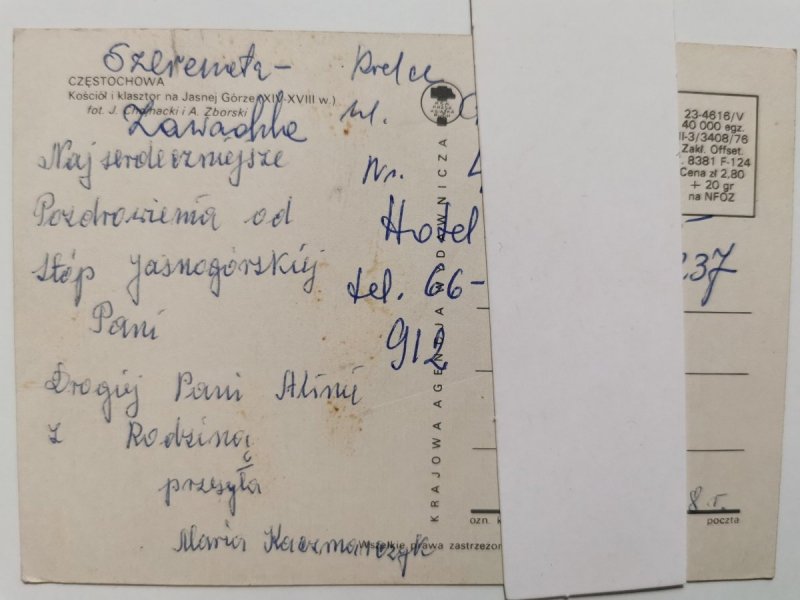 Szeremeta-
CZĘSTOCHOWA
Kościół i klasztor na Jasnej Górze (XIV-XVIII w.)
fot. J. Chojnacki i A. Zborski
Zawadka
Najserdeczniejsze
Pozdrowienia od
Stóp Jasnogórskiej
Pani
Drogiej Pani Alinie
z Rodziną
przesyła
Maria Kaczmarczyk
ul.
Nr. 4
Hotel
tel. 66-
912
237
KRAJOWA AGENCJA WYDAWNICZA
23-4616/V
40 000 egz.
II-3/3408/76
Zakł. Offset.
. 8381 F-124
Cena zł 2,80
+ 20 gr
na NFOZ
8.r.
ozn. k
poczta
Wszelkie prawa zastrzeżon